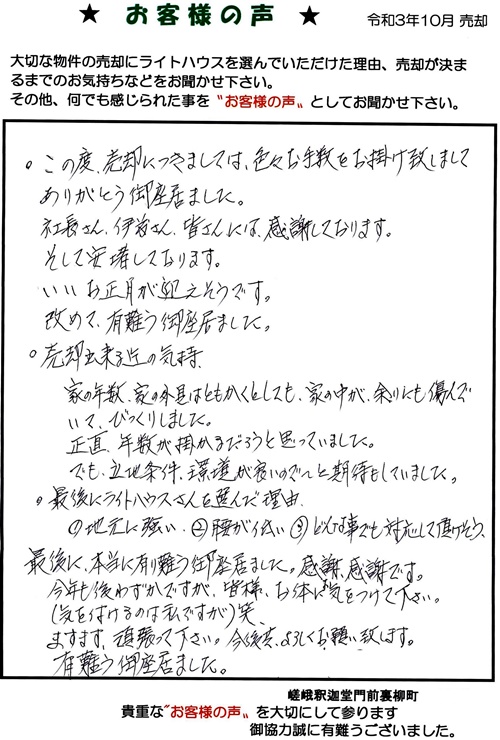 ★ お客様の声 ★ 令和3年10月 売却
大切な物件の売却にライトハウスを選んでいただけた理由、売却が決ま
るまでのお気持ちなどをお聞かせ下さい。
その他、何でも感じられた事を〝お客様の声〟としてお聞かせ下さい。
○この度、売却につきましては、色々お手数をお掛け致しまして
ありがとう御座居ました。
社長さん、伊 さん、皆さんには、感謝しております。
そして安堵しております。
いいお正月が迎えそうです。
改めて、有難う御座居ました。
○売却出来る迄の気持
家の年数、家の外見はともかくとしても、家の中が、余りにも傷んで
いて、びっくりしました。
正直、年数が掛かるだろうと思っていました。
でも、立地条件、環境が良いので、と期待もしていました。
○最後にライトハウスさんを選んだ理由
①地元に強い ②腰が低い ③どんな事でも対応して頂けそう
最後に、本当に有難う御座居ました。感謝、感謝です。
今年も後わずかですが、皆様、お体に気をつけて下さい。
(気を付けるのは私ですが)笑、
ますます、頑張って下さい。今後共、よろしくお願い致します。
有難う御座居ました。
嵯峨釈迦堂門前裏柳町
貴重な〝お客様の声〟を大切にして参ります
御協力誠に有難うございました。